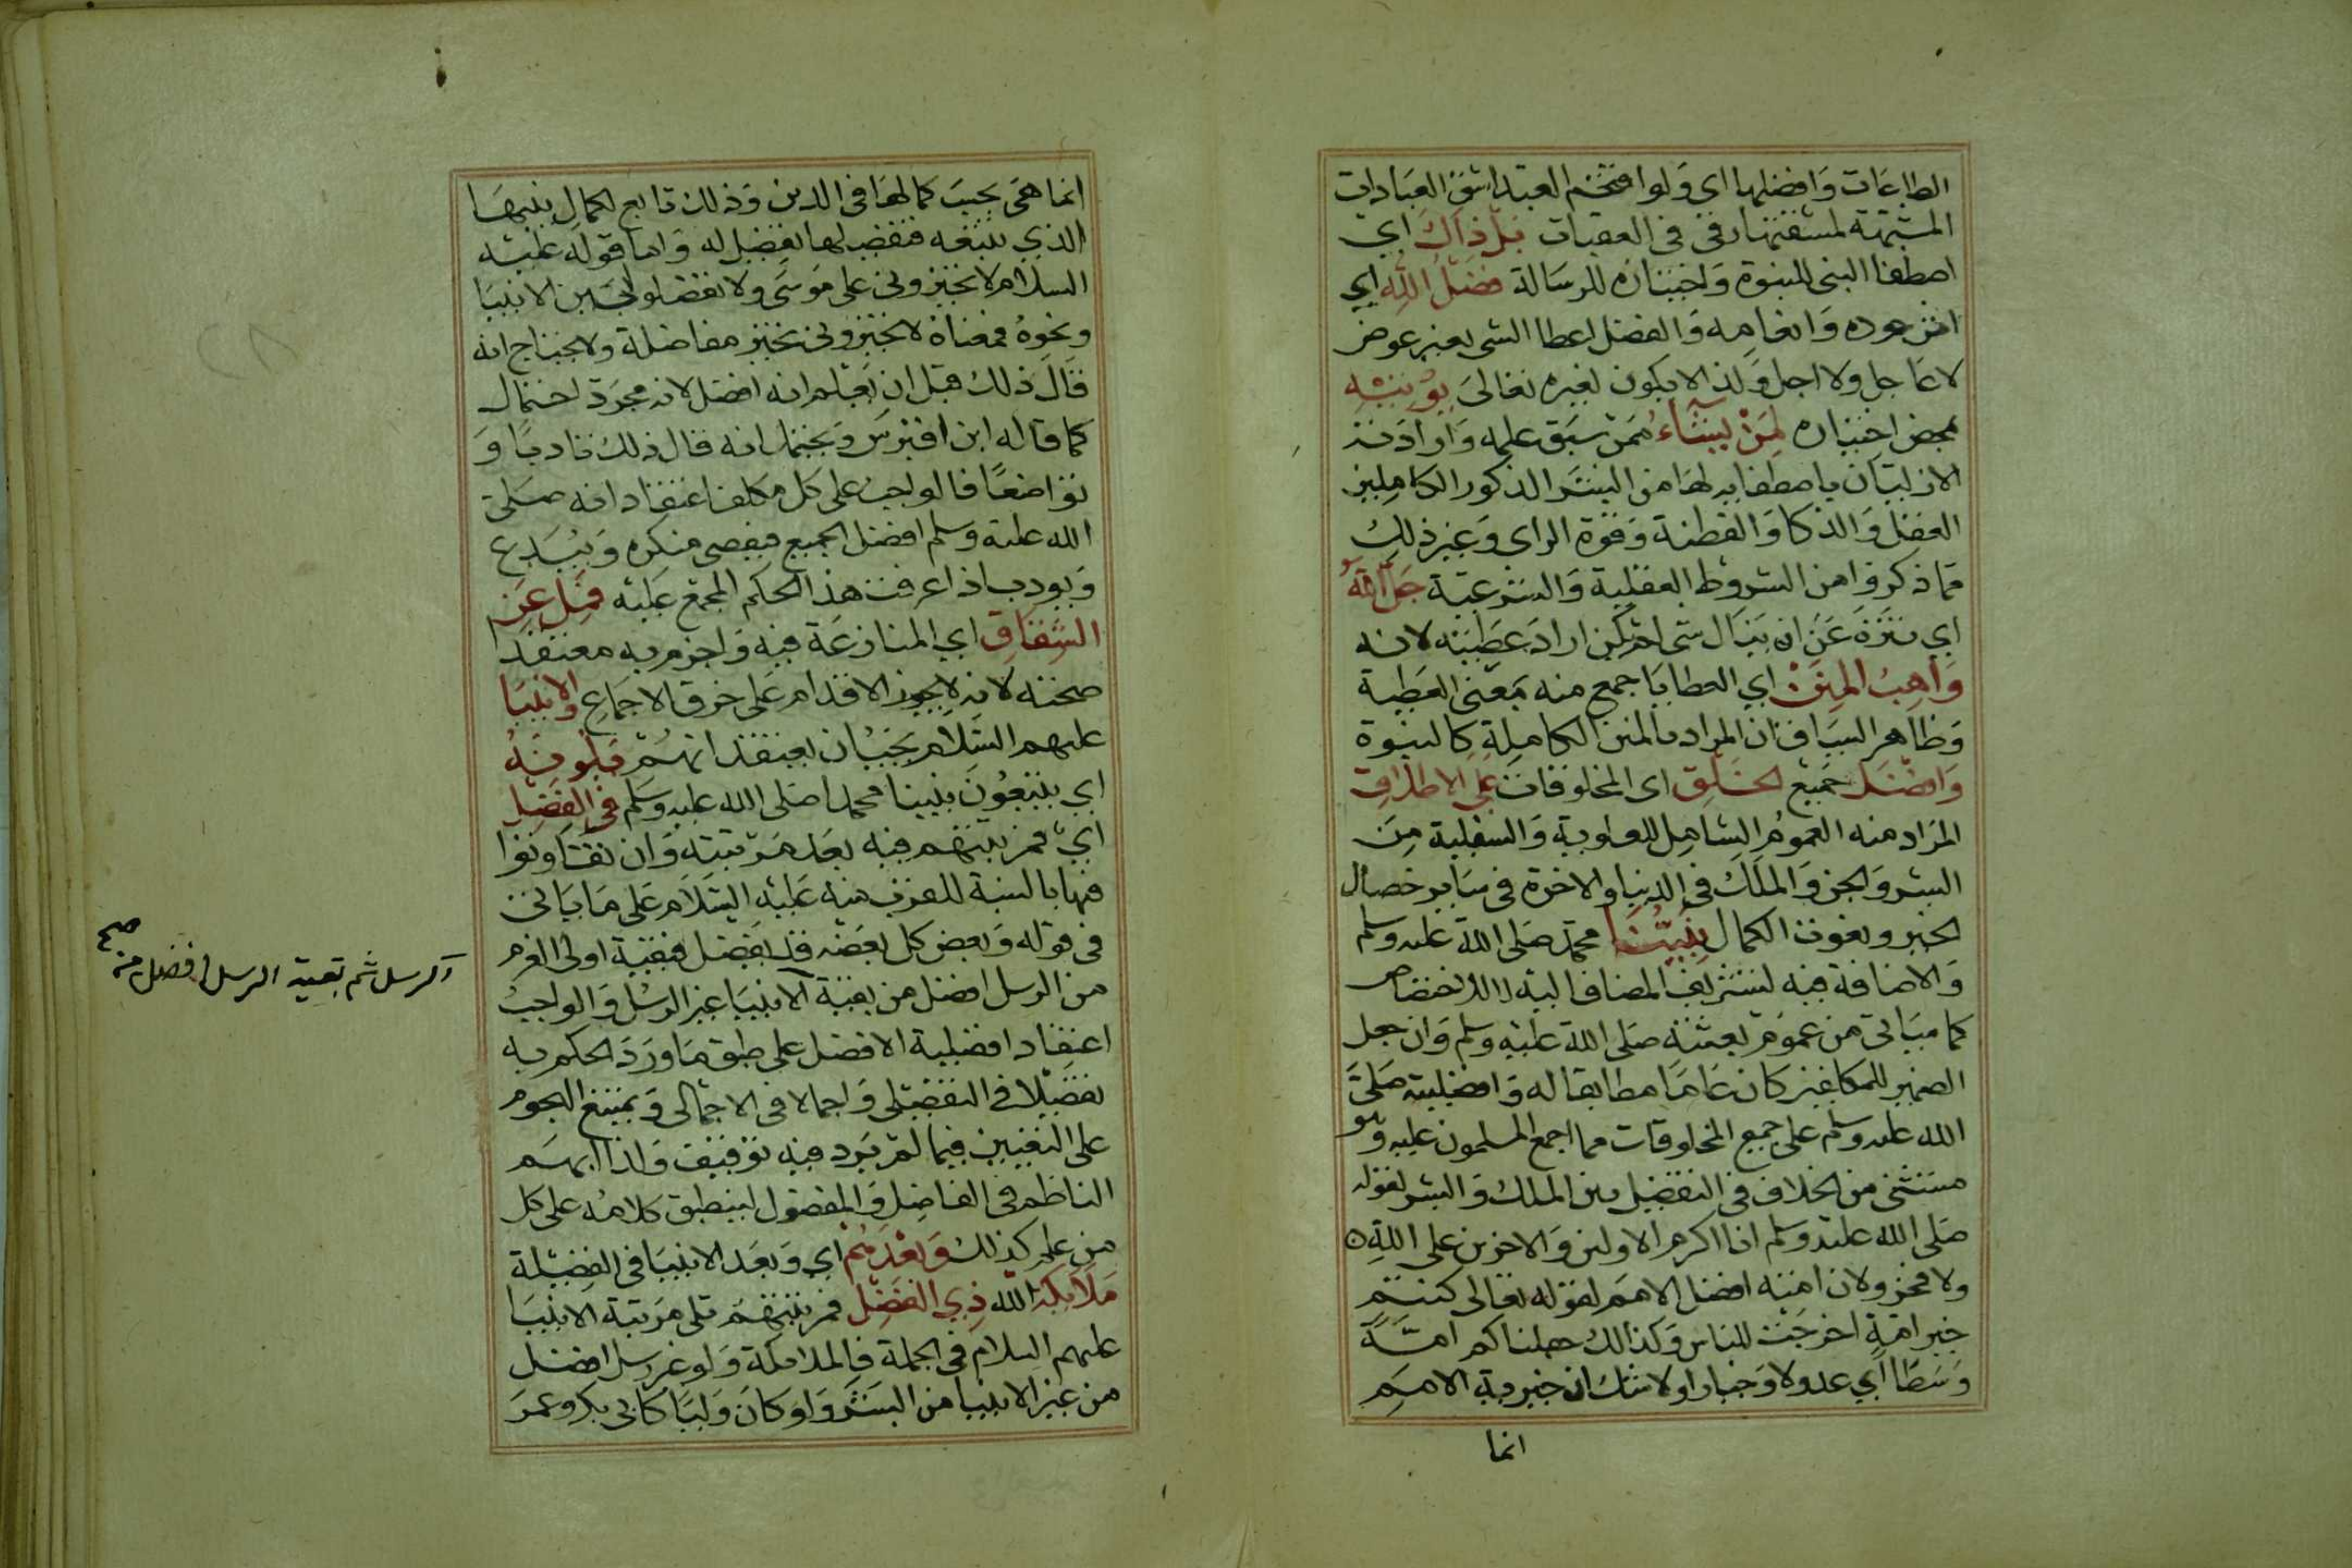 الطاعات وافضلها اي ولوا فتخم العبد اشق العبادات
المشبهة لمشقتها رقي في العقبات بل ذاك اي
اصطفا النبى للنبوة واختياره للرسالة فضل الله اي
اثر جوده وانعامه والفضل اعطا الشى بغير عوض
لا عاجل ولا اجل ولذا لا يكون لغيره تعالى يؤتيه
بمحض اختياره لمن يشاء ممن سبق علمه وارادته
الازليتان باصطفايه لها من البشر الذكور الكاملين
العقل والذكا والفطنة وقوة الراي وغير ذلك
مما ذكروا من الشروط العقلية والشرعية جل الله
اي تنزه عن ان ينال شى لم يكن اراد عطيته لانه
واهب المنن اي العطايا جمع منه بمعنى العطية
وظاهر السياق ان المراد بالمنن الكاملة كالنبوة
وافضل جميع الخلق اى المخلوقات على الاطلاق
المراد منه العموم الشامل للعلوية والسفلية من
البشر والجن والملك في الدنيا والاخرة في ساير خصال
الخير ونعوت الكمال نبينا محمد صلى الله عليه وسلم
والاضافة فيه لتشريف المضاف اليه لا للاختصاص
كما سياتى من عموم بعثته صلى الله عليه وسلم وان جعل
الضمير للمكلفين كان عاما مطابقا له وافضليته صلى
الله عليه وسلم على جميع المخلوقات مما اجمع المسلمون عليه وهو
مستثنى من الخلاف في التفضيل بين الملك والبشر لقوله
صلى الله عليه وسلم انا اكرم الاولين والاخرين على الله
ولا فخر ولان امته افضل الامم لقوله تعالى كنتم
خير امة اخرجت للناس وكذلك جعلناكم امة
وسطا اي عدولا وخيارا ولا شك ان خيرية الامم
انما
انما هى بحسب كمالها في الدين وذلك تابع لكمال نبيها
الذي تتبعه فتفضيلها تفضيل له واما قوله عليه
السلام لا تخيروني على موسى ولا تفضلوا بين الانبيا
ونحوه فمعناه لا تخيروني تخيير مفاضلة ولا يحتاج انه
قال ذلك قبل ان يعلم انه افضل لانه مجرد احتمال
كما قاله ابن اقبرس ويحتمل انه قال ذلك تادبا و
تواضعا فالواجب على كل مكلف اعتقاد انه صلى
الله عليه وسلم افضل الجميع فيعصى منكره ويبدع
ويودب اذا عرفت هذا الحكم المجمع عليه فمل عن
الشقاق اي المنازعة فيه واجزم به معتقدا
صحته لانه لا يجوز الاقدام على خرق الاجماع والانبيا
عليهم السلام يجب ان يعتقد انهم يلونه
اي يتبعون نبينا محمدا صلى الله عليه وسلم في الفضل
اي فمرتبتهم فيه بعد مرتبته وان تفاوتوا
فيها بالنسبة للقرب منه عليه السلام على ما ياتى
في قوله وبعض كل بعضه قد يفضل فبقية اولى العزم
من الرسل افضل من بقية الانبيا غير الرسل والواجب
الرسل ثم بقية الرسل افضل من صح
اعتقاد افضلية الافضل على طبق ما ورد الحكم به
تفضيلا في التفضيلى واجمالا في الاجمالى ويمتنع الهجوم
على التعيين فيما لم يرد فيه توقيف ولذا ابهم
الناظم في الفاضل والمفضول لينطبق كلامه على كل
من علم كذلك وبعدهم اي وبعد الانبيا في الفضيلة
ملايكة الله ذي الفضل فمرتبتهم تلى مرتبة الانبيا
عليهم السلام في الجملة فالملايكة ولو غير رسل افضل
من غير الانبيا من البشر ولو كان وليا كابى بكر وعمر